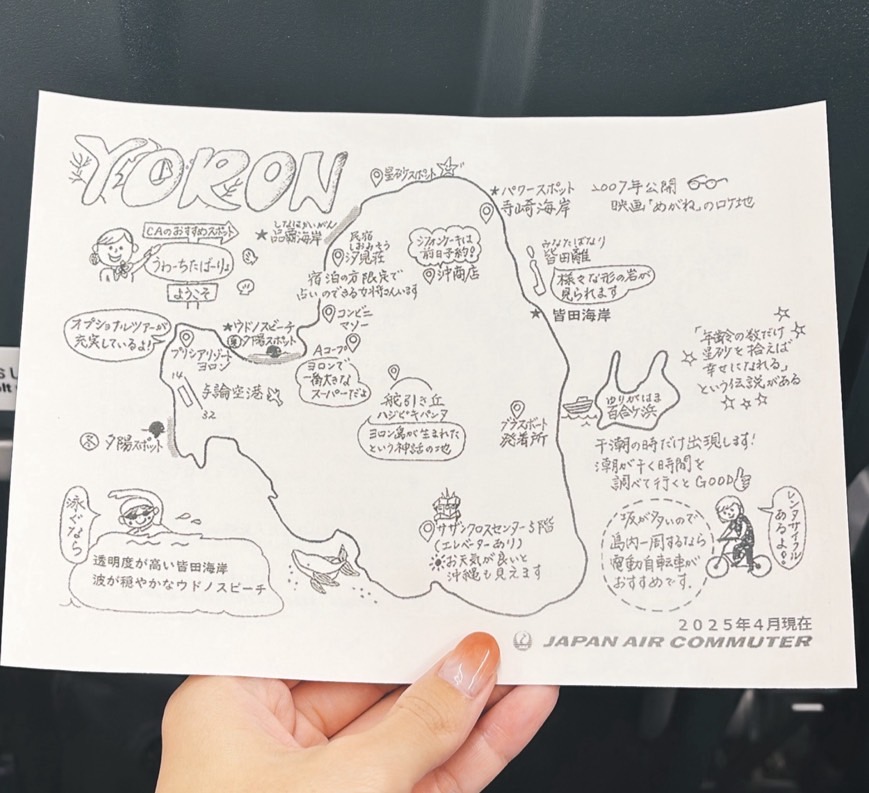 YORON
CAのおすすめスポット
うわーちたばーりょ
ようこそ
オプショナルツアーが
充実しているよ!
星砂スポット
★パワースポット
寺崎海岸
2007年公開
映画「めがね」のロケ地
しなはかいがん
★品覇海岸
民宿
しおみそう
汐見荘
宿泊の方限定で
占いのできる女将さんいます
シフォンケーキは
前日予約!
沖商店
みなたばなり
皆田離
様々な形の岩が
見られます
★皆田海岸
コンビニ
マソー
★ウドノスビーチ
夏 夕陽スポット
プリシアリゾート
ヨロン
Aコープ
ヨロンで
一番大きな
スーパーだよ
14
与論空港
32
舵引き丘
ハジピキパンタ
ヨロン島が生まれた
という神話の地
グラスボート
発着所
ゆりがはま
百合ヶ浜
「年齢の数だけ
星砂を拾えば
幸せになれる」
という伝説がある
干潮の時だけ出現します!
潮が干く時間を
調べて行くとGOOD
冬 夕陽スポット
泳ぐなら
透明度が高い皆田海岸
波が穏やかなウドノスビーチ
サザンクロスセンター5階
(エレベーターあり)
お天気が良いと
沖縄も見えます
坂が多いので
島内一周するなら
電動自転車が
おすすめです。
レンタサイクル
あるよ。
2025年4月現在
JAPAN AIR COMMUTER